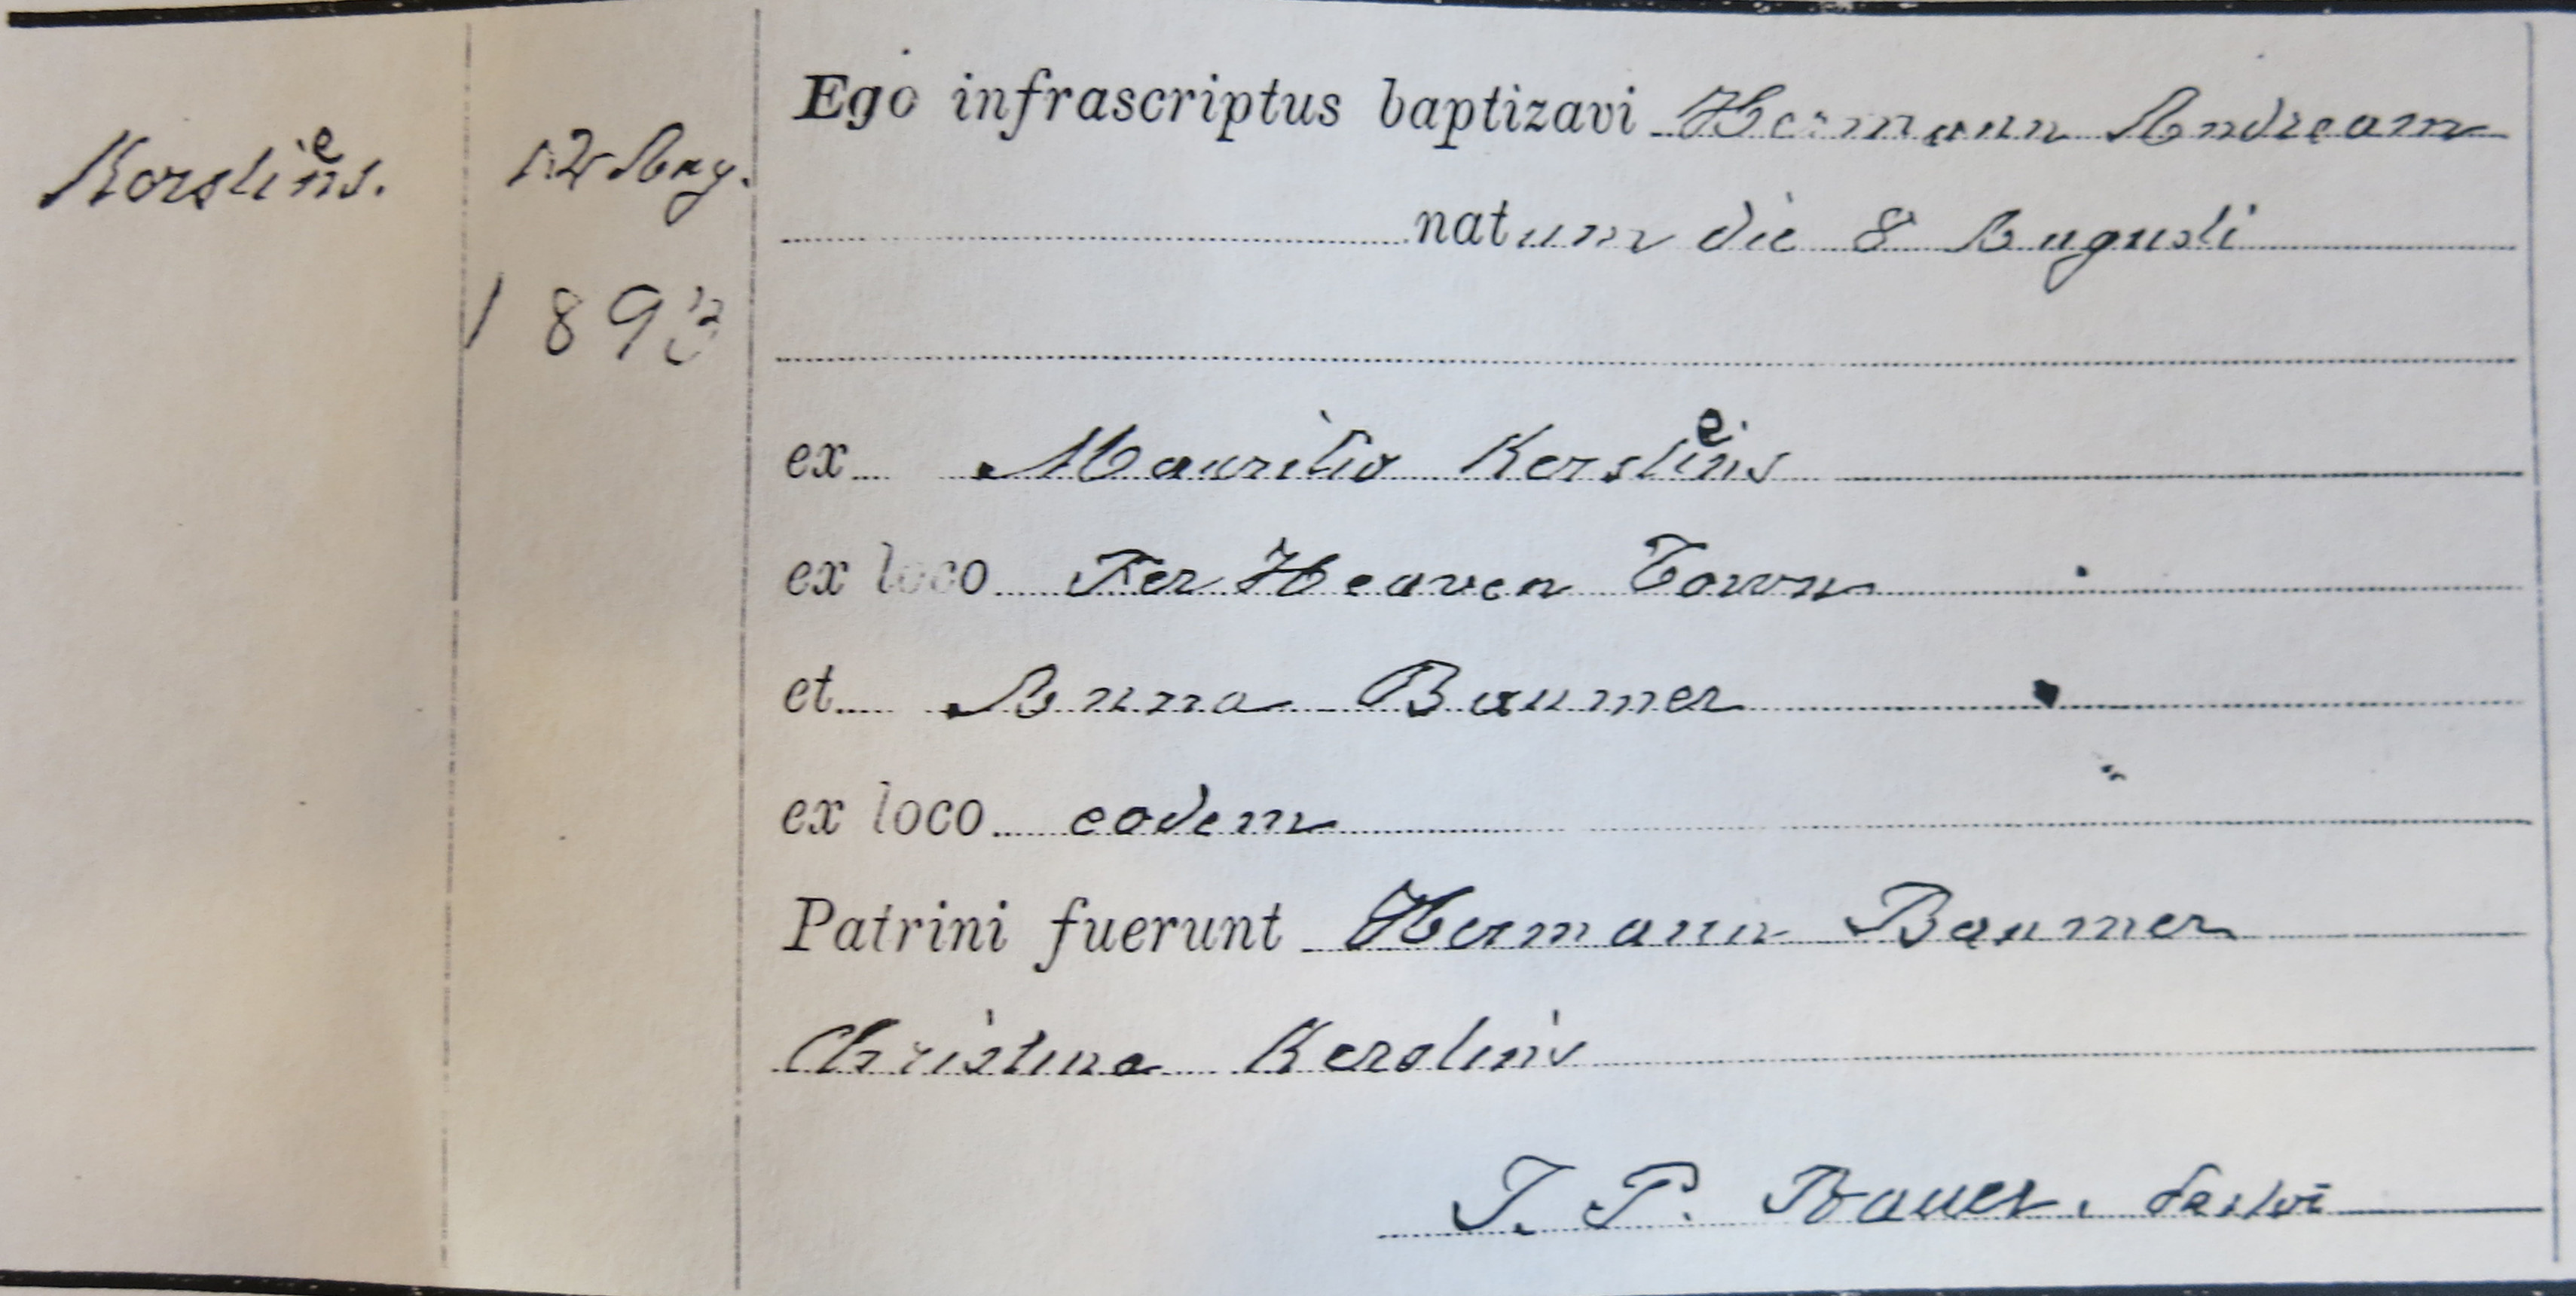 Kerstins.
e
12 Aug.
1893
Ego infrascriptus baptizavi Hermann Andream
natum die 8 Augusti
ex Mauritio Kerstins
e
ex loco Fer Heaven Town
et Anna Baumer
ex loco eodem
Patrini fuerunt Hermann Baumer
Christina Kerstins
J. P. Bauer, Pastor